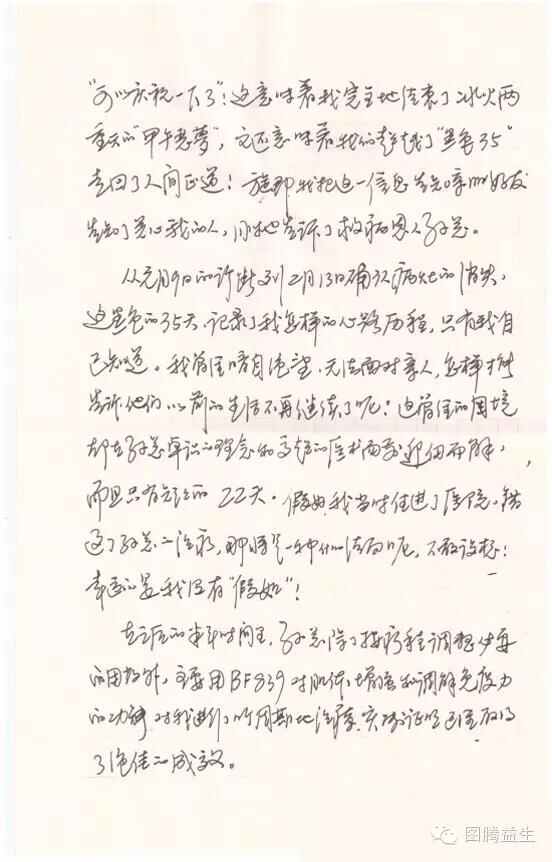 "可以庆祝一下了"！这意味着我完全地结束了冰火两
重天的"甲午恶梦"，它还意味着我们超越了"黑色35"
走回了人间正道！旋即我把这一信息告知亲朋好友
告知了关心我的人，同地告诉了救命恩人孙总。
从元月9日的诊断到2月13日确认病灶的消失，
这黑色的35天，记录了我怎样的心路历程，只有我自
己知道。我曾经暗自绝望，无法面对亲人，怎样才能
告诉他们以前的生活不再继续了呢？这曾经的困境
却在孙总卓识的理念和高超的医术面前迎刃而解，
而且只有短短的22天。假如我当时住进了医院，错
过了孙总的治疗，那将是一种什么结局呢，不敢设想！
幸运的是我没有"假如"！
在之后的半年时间里，孙总除了按疗程调整必要
的用药外，主要用BF839对肌体增强和调解免疫力
的功能，对我进行了听周期地治疗，实践证明这里取得
了绝佳的成效。
图腾益生